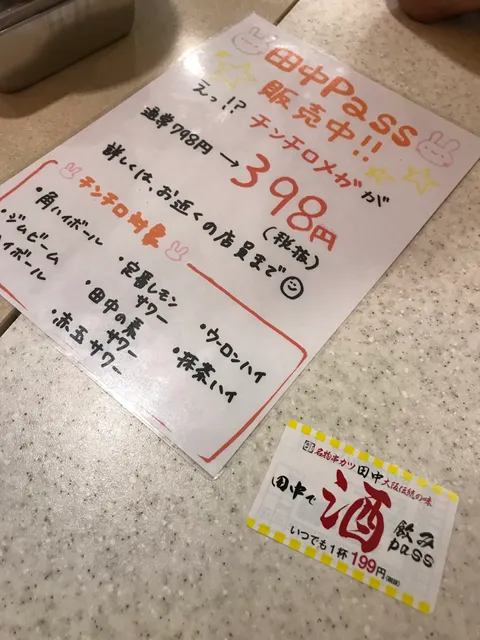 田中Pass
販売中!!
えっ!? チンチロメガが
通常798円→398円
(税抜)
詳しくは、お近くの店員まで
チンチロ対象
・角ハイボール
・ジムビーム
ハイボール
・定番レモン
サワー
・田中の
サワー
・赤玉サワー
・ウーロンハイ
・抹茶ハイ
名物串カツ田中 大阪伝統の味
田中で酒飲みpass
いつでも1杯199円(税抜)